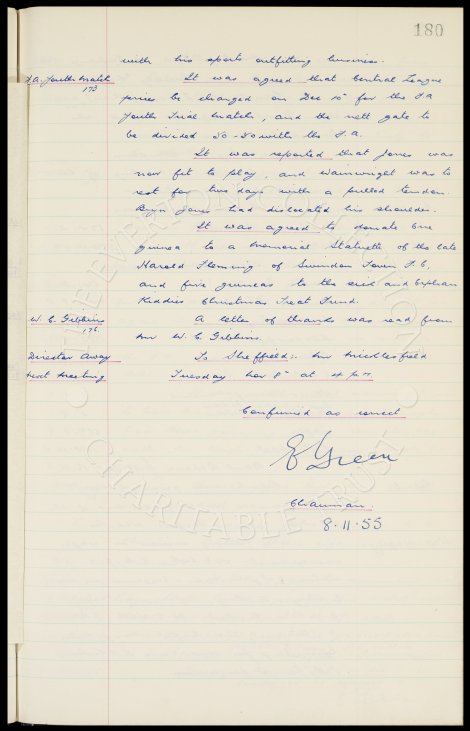 180
with his sports outfitting business.
F.A. Youth Match It was agreed that Central League
173
prices be charged on Dec 10 for the F.A
Youth Trial Match, and the nett gate to
be divided 50-50 with the F.A.
It was reported that Jones was
now fit to play, and Wainwright was to
rest for two days with a pulled tendon.
Bryn Jones had dislocated his shoulder.
It was agreed to donate One
guinea to a Memorial Statuette of the late
Harold Fleming of Swindon Town F.C,
and five guineas to the and Orphan
Kiddies Christmas Treat Fund.
W. C. Gibbins A letter of thanks was read from
176.
Mr W. C. Gibbins.
Director Away To Sheffield:- Mr Micklesfield
Next Meeting Tuesday Nov 8th at 4 p.m.
Confirmed as correct
E Green
Chairman.
8.11.55
THE EVERTON COLLECTION
CHARITABLE TRUST